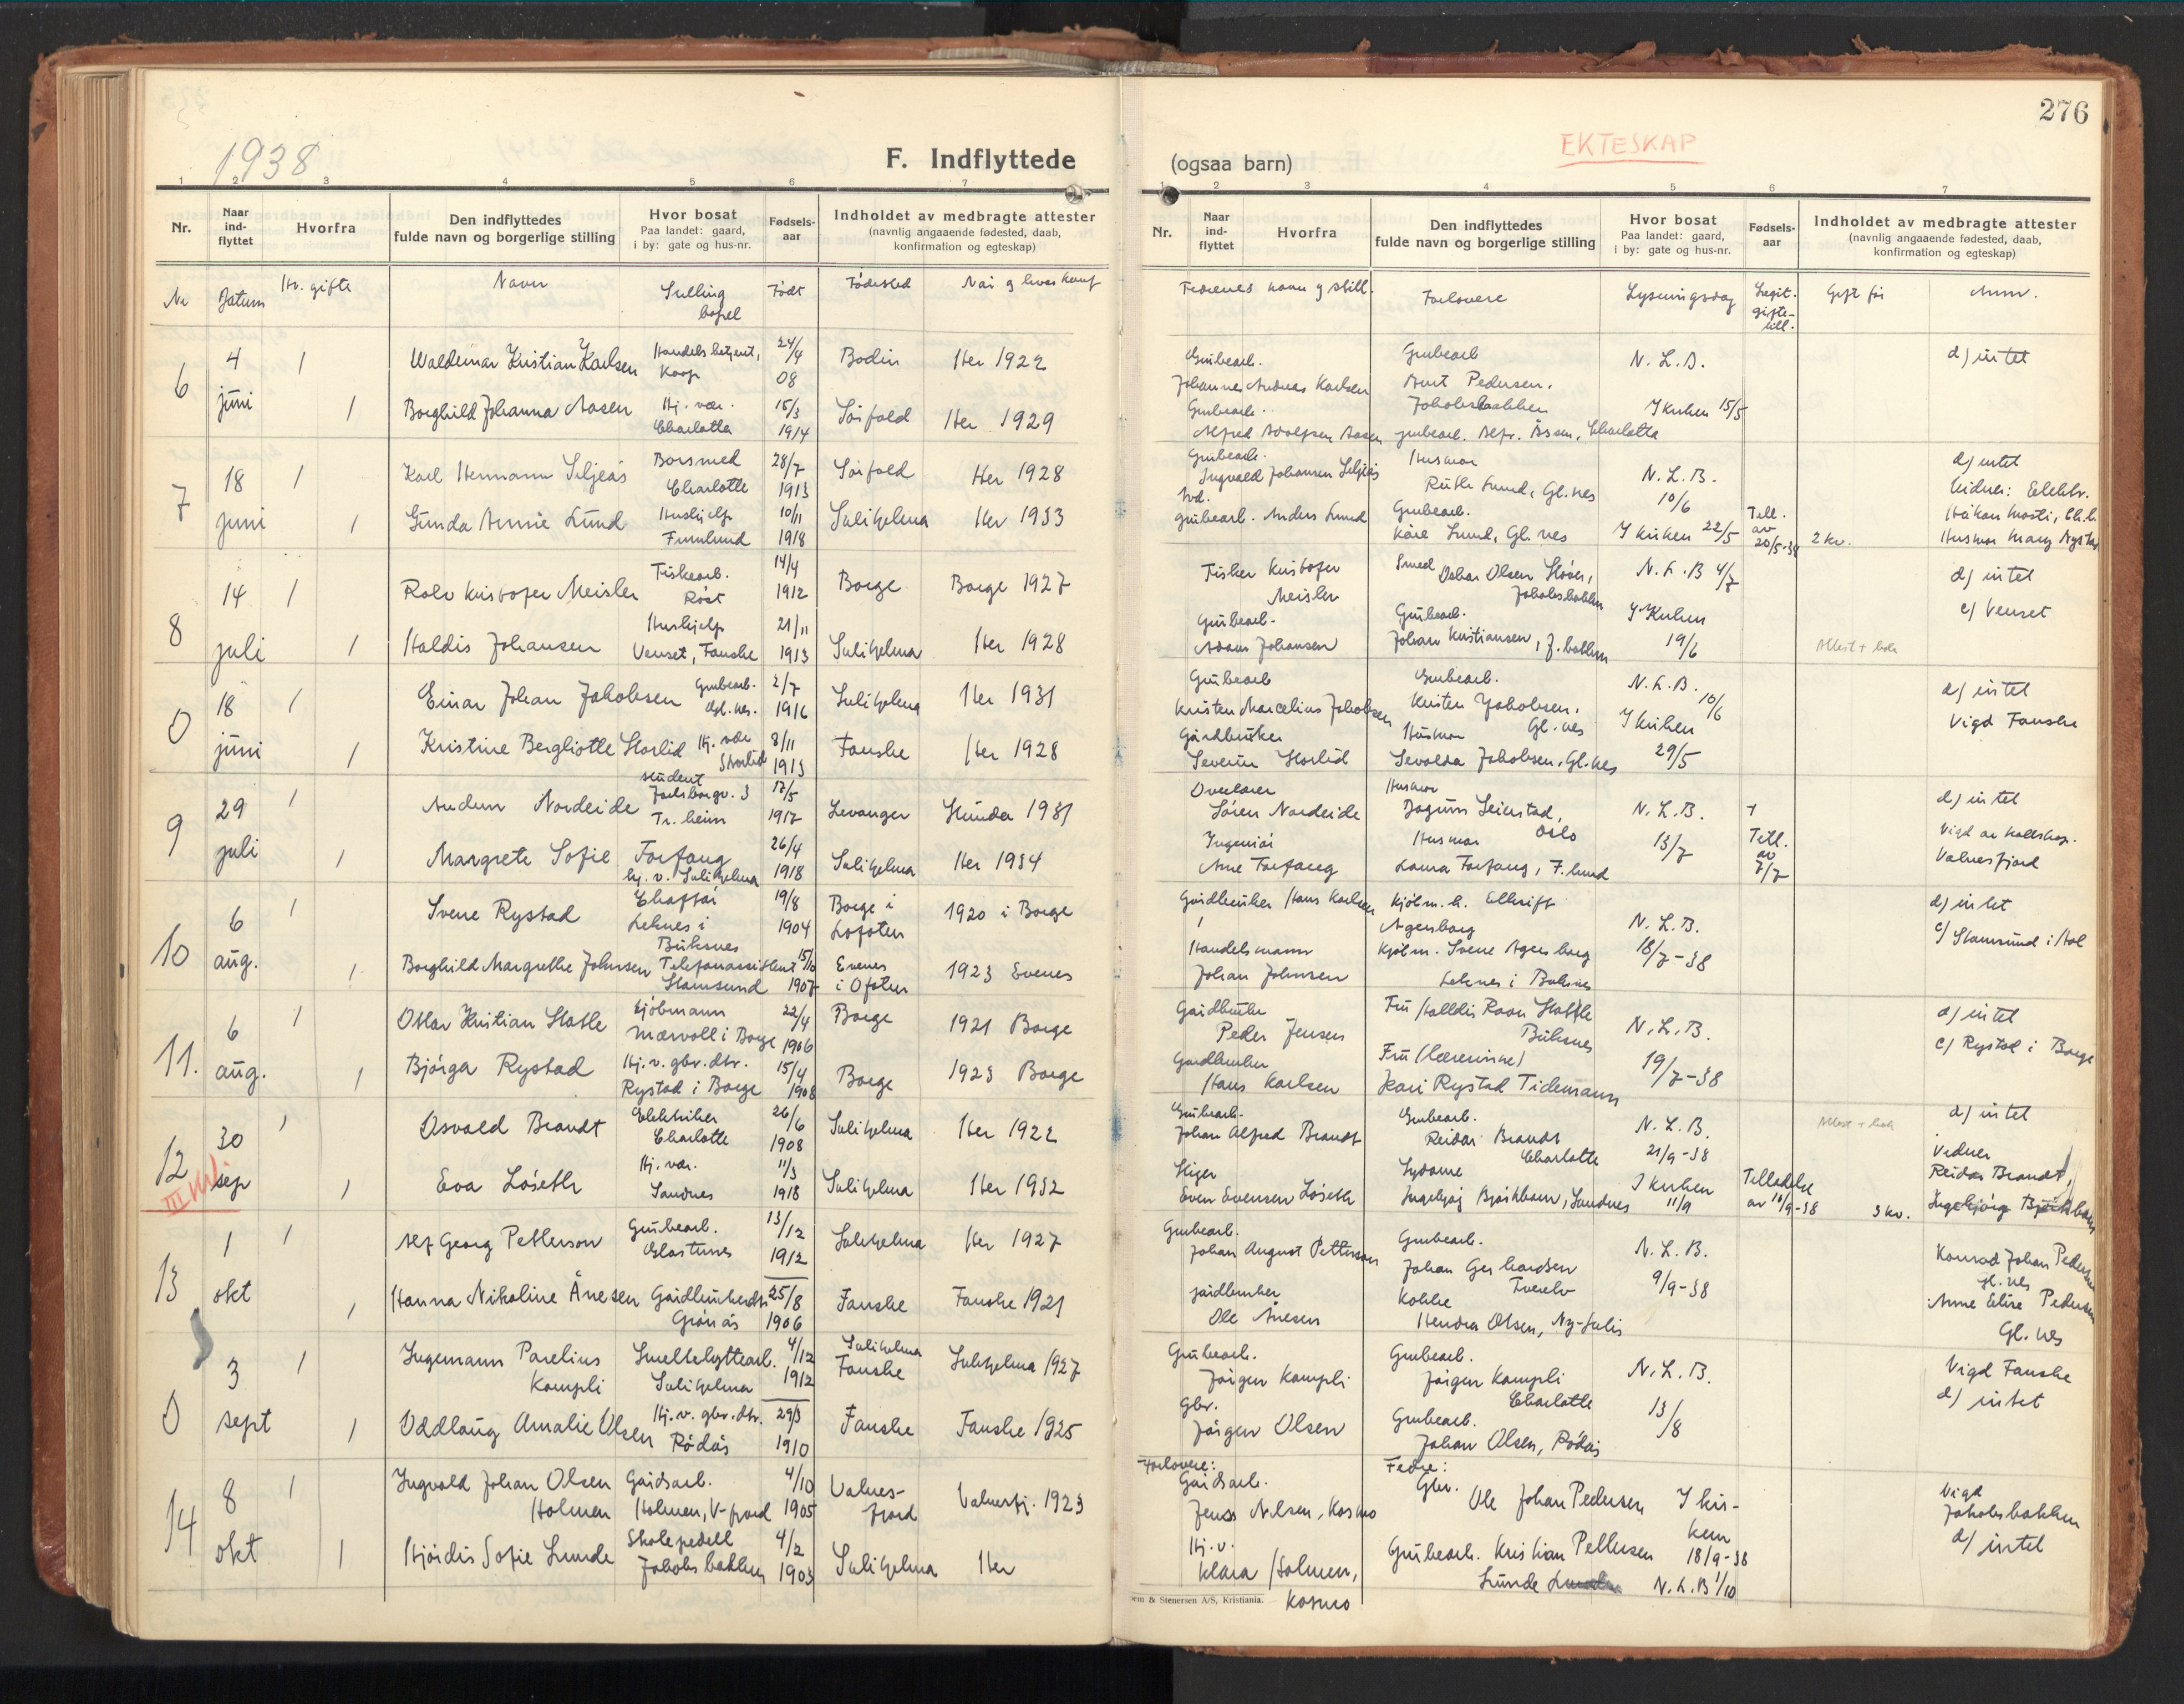 276
1938
F. Indflyttede
(ogsaa barn)
EKTESKAP
1 2 3 4 5 6 7
Nr.
Naar ind-flyttet
Hvorfra
Den indflyttedes fulde navn og borgerlige stilling
Hvor bosat
Paa landet: gaard, i by: gate og hus-nr.
Fødsels-aar
Indholdet av medbragte attester
(navnlig angaaende fødested, daab, konfirmation og egteskap)
1 2 3 4 5 6 7
Nr.
Naar ind-flyttet
Hvorfra
Den indflyttedes fulde navn og borgerlige stilling
Hvor bosat
Paa landet: gaard, i by: gate og hus-nr.
Fødsels-aar
Indholdet av medbragte attester
(navnlig angaaende fødested, daab, konfirmation og egteskap)
Nr Datum Navn Stilling bopel Født Fødested
Forlovere Lysningsdag Anm.
6
4 1 Waldemar Kristian Karlsen Koop 24/4 08 Bodin Her 1922
Grubearb. Johannes Andreas Karlsen Grubearb Pedersen. N. L. B. d) intet
juni 1 Borghild Johanna Aasen Hj. vær. Charlotta 15/3 1914 Sørfold Her 1929
Grubearb. Alfred Adolfsen Aasen Charlotta I kirken 15/5
7
18 1 Karl Hermann Seljeås Charlotte 28/7 1913 Sørfold Her 1928
Grubearb. Ingvald Johansen Seljeås Husmor Ruth Lund, Gl.nes N. L. B. 10/6 d) intet
juni 1 Gunda Annie Lund Hushjelp Furulund 10/11 1918 Sulitjelma Her 1933
grubearb. Anders Lund Grubearb. Kåre Lund, Gl. nes I kirken 22/5 Till. av 20/5-38 2 kr.
8
14 1 Rolv Kristofer Meisler Fiskearb. Røst 14/4 1912 Borge Borge 1927
Fisker Kristofer Meisler Smed Oskar Olsen Jakobsbakken N. L. B 4/7 d) intet
juli 1 Haldis Johansen Hushjelp Venset, Fauske 21/11 1913 Sulitjelma Her 1928
Grubearb. Adam Johansen Grubearb. Johan Kristiansen, J. bakken I Kirken 19/6 Attest + bok c) Venset
0
18 1 Einar Johan Jakobsen Grubearb. Gl. nes. 2/7 1916 Sulitjelma Her 1931
Grubearb Kristen Marcelius Jakobsen Grubearb. Kristen Jakobsen, Gl. nes N. L. B. 10/6 d) intet
juni 1 Kristine Bergliotte Storlid Hj. vær Storlid 8/11 1913 Fauske Her 1928
Gårdbruker Severin Storlid Husmor Sevolda Jakobsen, Gl. nes I kirken 29/5 Vigd Fauske
9
29 1 Audun Nordeide student Tr. heim 17/5 1917 Levanger 1931
Overlærer Søren Nordeide Husmor Jogunn Leirstad, Oslo N. L. B. 13/7 d) intet
juli 1 Margrete Sofie Torfang hj. v. Sulitjelma 26/4 1918 Sulitjelma Her 1934
Ingeniør Arne Torfang Husmor Laura Torfang, F. lund + Till. av 7/7 Valnesfjord
10
6 1 Sverre Rystad Leknes i Buksnes 19/8 1904 Borge i Lofoten 1920 i Borge
Gårdbruker Hans Karlsen Kjøbm. Agersborg N. L. B. 18/7-38 d) intet
aug. 1 Borghild Margrethe Johnsen Telefonassistent Stamsund 15/10 1907 Evenes i Ofoten 1923 Evenes
Handelsmann Johan Johnsen Kjøbm. Sverre Agersborg Leknes i Buksnes c) Stamsund i Hol
11.
6 1 Ottar Kristian Statle Kjøbmann Mærvoll i Borge 22/4 1906 Borge 1921 Borge
Gårdbruker Peder Jensen Fru Halldis Buksnes N. L. B. d) intet
aug. 1 Bjørga Rystad Hj. v. gbr. dtr. Rystad i Borge 15/4 1908 Borge 1923 Borge
Gardbruker Hans Karlsen Fru (lærerinne) Kari Rystad Tidemann 19/7-38 c) Rystad i Borge
12
30 1 Osvald Brandt Elektriker Charlotte 26/6 1908 Sulitjelma Her 1922
Grubearb. Johan Alfred Brandt Grubearb. Reidar Brandt Charlotte N. L. B. 21/9-38 Attest + bok d) intet
sep 1 Eva Løseth Hj. vær. Sandnes 11/3 1918 Sulitjelma Her 1932
Stiger Even Evensen Løseth Ingebjørg Sandnes I kirken 11/9 Tilladelse av 10/9-38 3 kr. Vidner Reidar Brandt,
III
13
1 1 Alf Georg Petterson Grubearb. Glastunes 13/12 1912 Sulitjelma Her 1927
Grubearb. Johan August Petterson Grubearb. Johan Gerhardsen N. L. B. 9/9-38 Konrad Johan Pedersen Gl. nes
okt 1 Hanna Nikoline Ånesen Grønås 25/8 1906 Fauske Fauske 1921
gårdbruker Ole Ånesen Kokke Hendra Olsen, Ny-Sulis Anne Elise Pedersen Gl. nes
0
3 1 Ingemann Parelius Kampli Smeltehyttearb. Sulitjelma 4/12 1912 Sulitjelma Fauske Sulitjelma 1927
Grubearb. Jørgen Kampli Grubearb. Jørgen Kampli Charlotte N. L. B. 13/8 Vigd Fauske
sept 1 Oddlaug Amalie Olsen Hj. v. gbr. dtr. Rødås 29/3 1910 Fauske Fauske 1925
Gbr. Jørgen Olsen Grubearb. Johan Olsen, Rødås d) intet
14
8 1 Ingvald Johan Olsen Holmen Gårdsarb. Holmen, V-fjord 4/10 1905 Valnesfjord Valnesfj. 1923
Forlovere: Gårdsarb. Jens Nilsen, Kosmo Fedre: Gbr. Ole Johan Pedersen I kirken 18/9-38 Vigd Jakobsbakken
okt 1 Hjørdis Sofie Lunde Skolepedell Jakobsbakken 4/2 1903 Sulitjelma Her
Hj. v. Klara Holmen, Kosmo Grubearb. Kristian Pettersen Lunde N. L. B 1/10 d) intet
& Stenersen A/S, Kristiania.